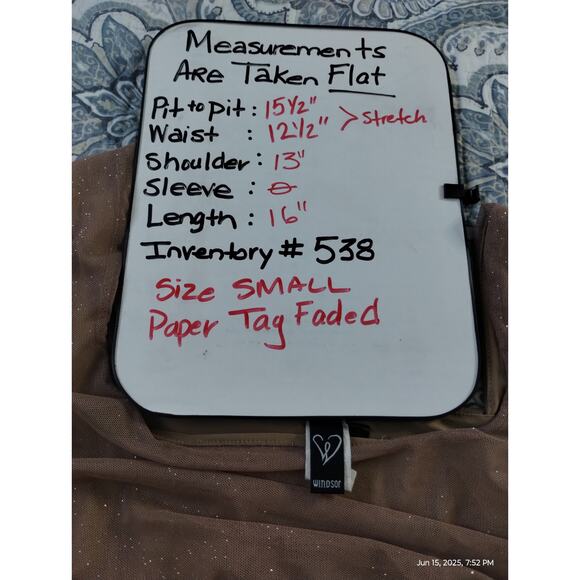 Measurements
Are Taken Flat
Pit to pit : 15 1/2"
Waist : 12 1/2" > Stretch
Shoulder : 13"
Sleeve : 0
Length : 16"
Inventory # 538
Size SMALL
Paper Tag Faded
WINDSOR
Jun 15, 2025, 7:52 PM